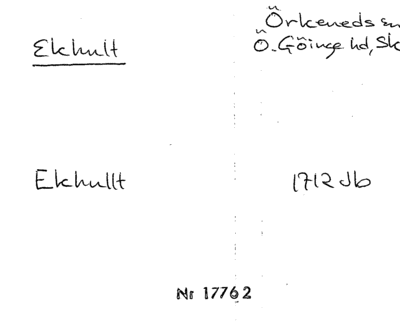 Örkeneds sn
Ekhult Ö. Göinge hd, Sk
Ekhullt 1712 Jb
Nr 17762